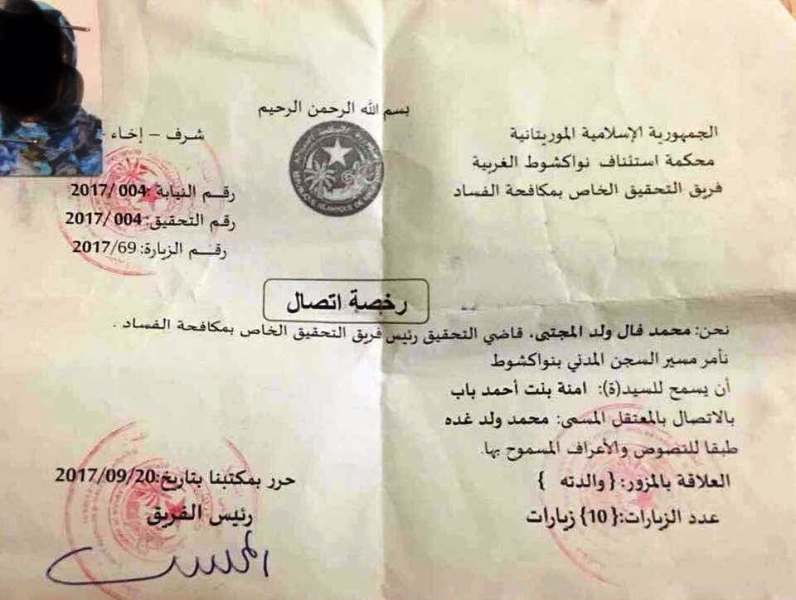 بسم الله الرحمن الرحيم
الجمهورية الإسلامية الموريتانية
محكمة استئناف نواكشوط الغربية
فريق التحقيق الخاص بمكافحة الفساد
شرف – إخاء -
رقم النيابة :2017/004
رقم التحقيق: 2017/004
رقم الزيارة: 2017/69
رخصة اتصال
نحن: محمد فال ولد المجتبى، قاضي التحقيق رئيس فريق التحقيق الخاص بمكافحة الفساد .
نأمر مسير السجن المدني بنواكشوط
أن يسمح للسيد(ة): امنة بنت أحمد باب
بالاتصال بالمعتقل المسمى: محمد ولد غده
طبقا للنصوص والأعراف المسموح بها.
العلاقة بالمزور: { والدته }
عدد الزيارات:{ 10} زيارات
حرر بمكتبنا بتاريخ:2017/09/20
رئيس الفريق